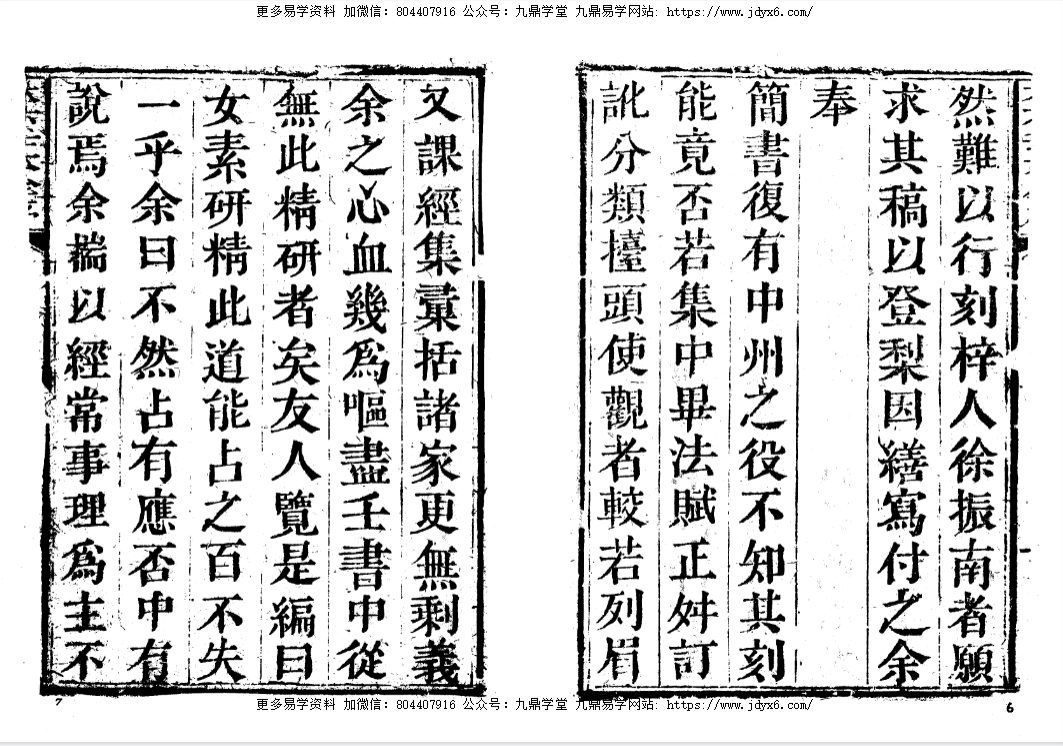 更多易学资料 加微信：804407916 公众号：九鼎学堂 九鼎易学网站: https://www.jdyx6.com/
然難以行刻梓人徐振南者願
求其稿以登梨因繕寫付之余
奉
簡書復有中州之役不知其刻
能竟否若集中畢法賦正舛訂
訛分類擡頭使觀者較若列眉
6
又課經集彙括諸家更無剩義
余之心血幾爲嘔盡壬書中從
無此精研者矣友人覽是編曰
女素研精此道能占之百不失
一乎余曰不然占有應否中有
說焉余揣以經常事理爲主不
7
更多易学资料 加微信：804407916 公众号：九鼎学堂 九鼎易学网站: https://www.jdyx6.com/